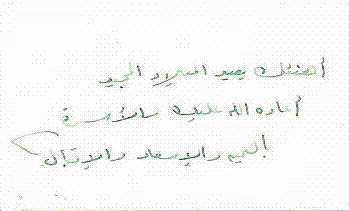 أهنئك بعيد الميلاد المجيد
أعاده الله عليك والأسرة
باليمن والإسعاد والإقبال